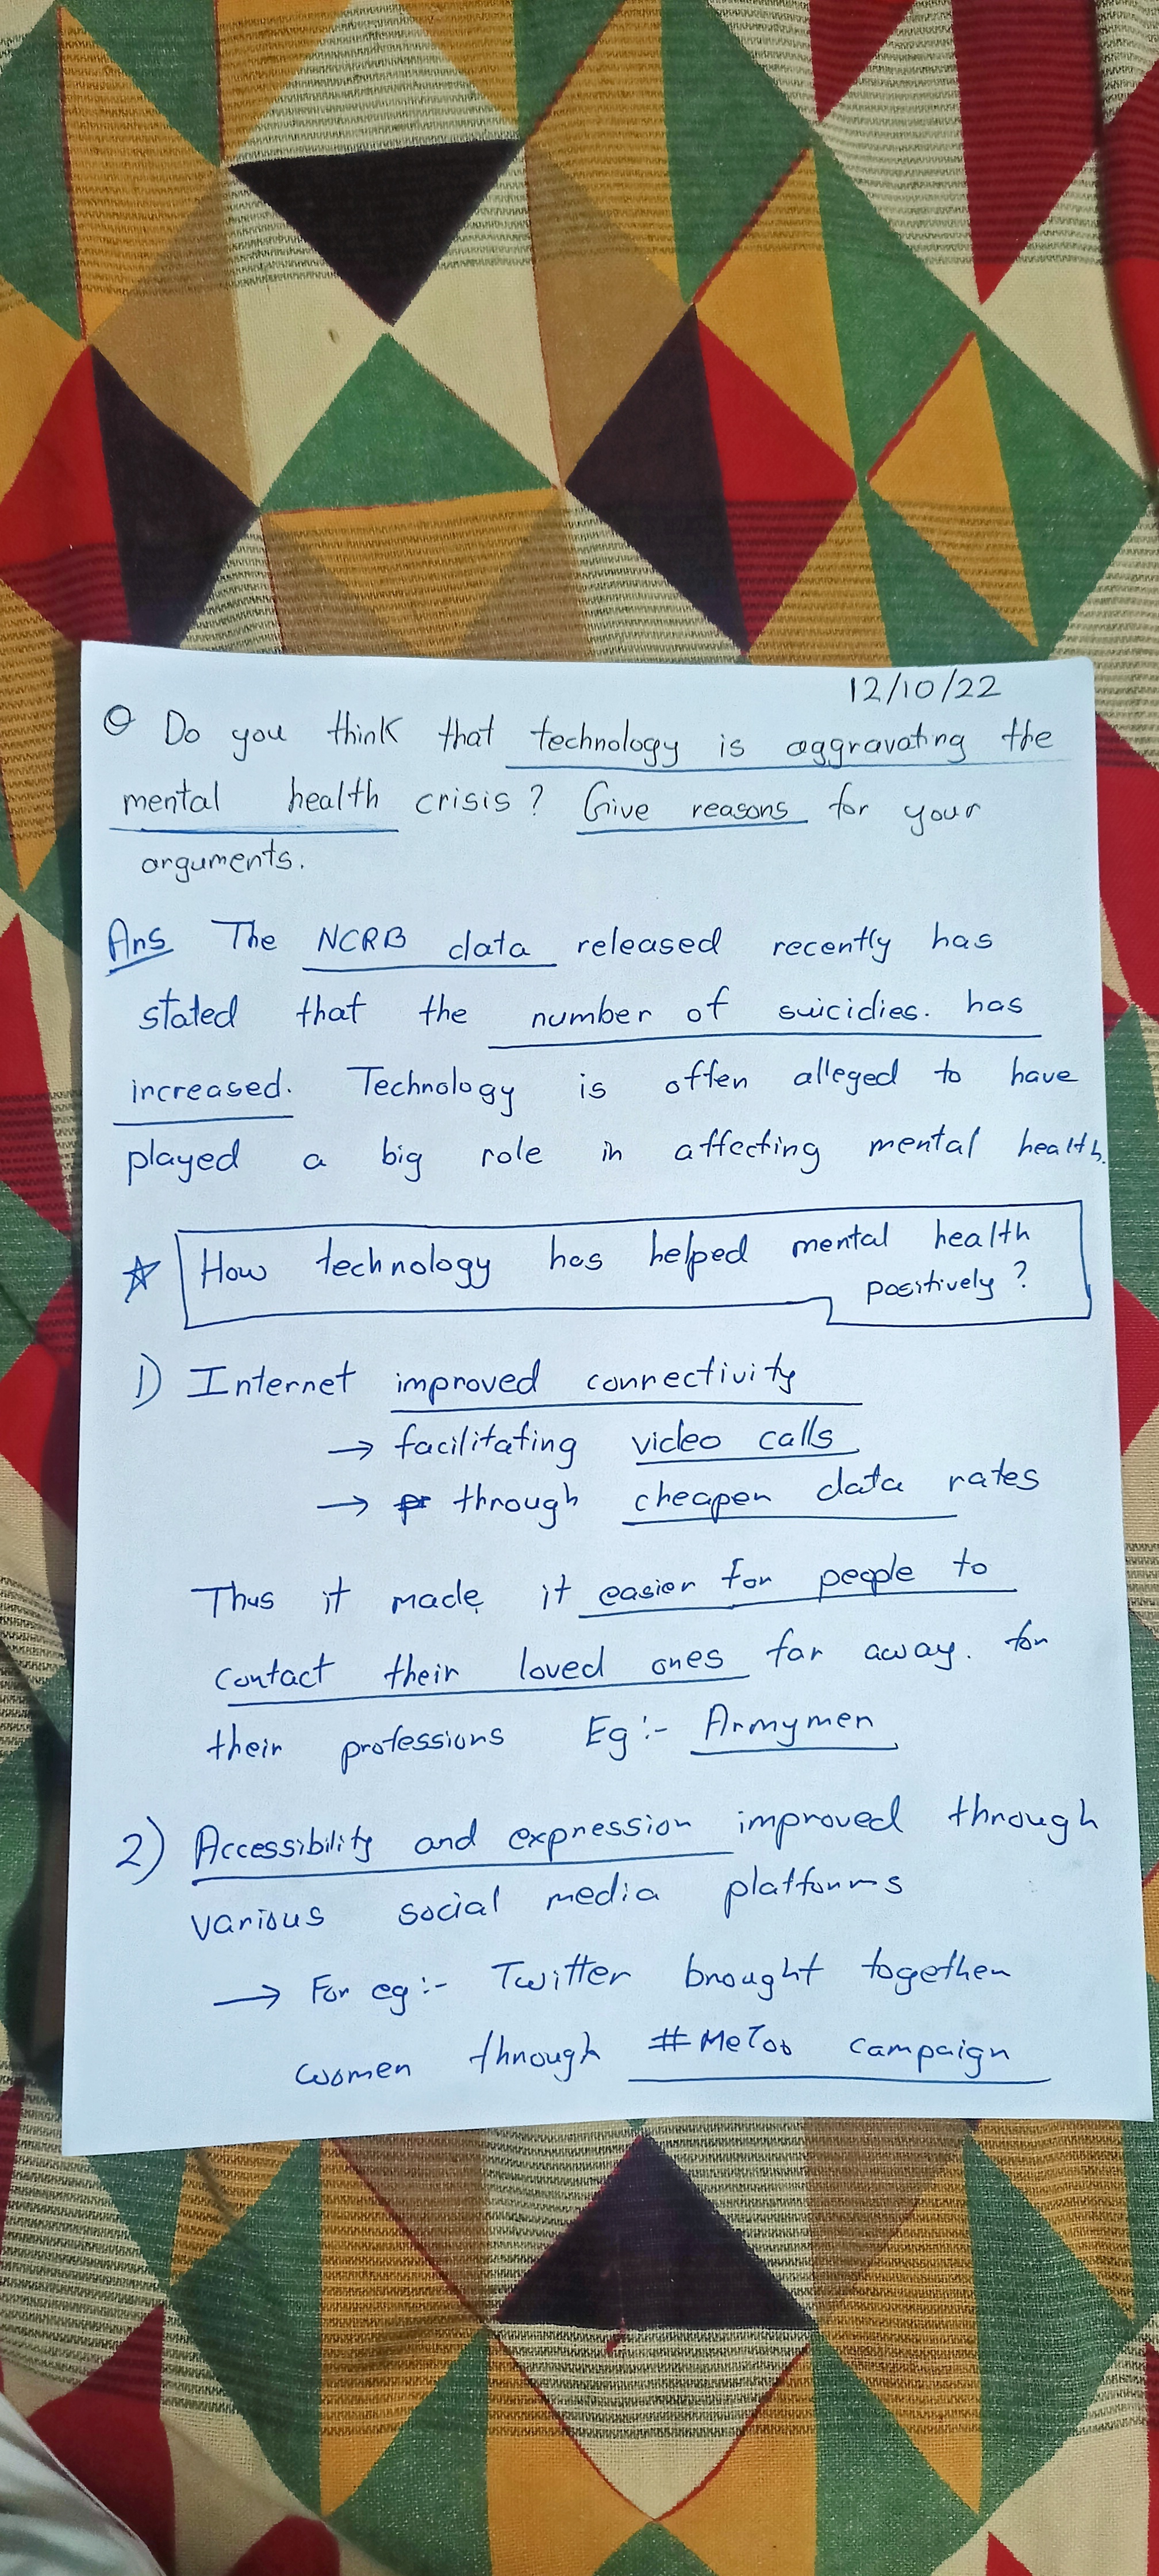 12/10/22
Q Do you think that technology is aggravating the
mental health crisis? Give reasons for your
arguments.
Ans The NCRB data released recently has
stated that the number of suicidies. has
increased. Technology is often alleged to have
played a big role in affecting mental health.
☆ How technology has helped mental health
positively?
1) Internet improved connectivity
→ facilitating video calls
→ through cheaper data rates
Thus it made it easier for people to
contact their loved ones far away. for
their professions Eg:- Armymen
2) Accessibility and expression improved through
various social media platforms
→ For eg:- Twitter brought together
women through #MeToo campaign